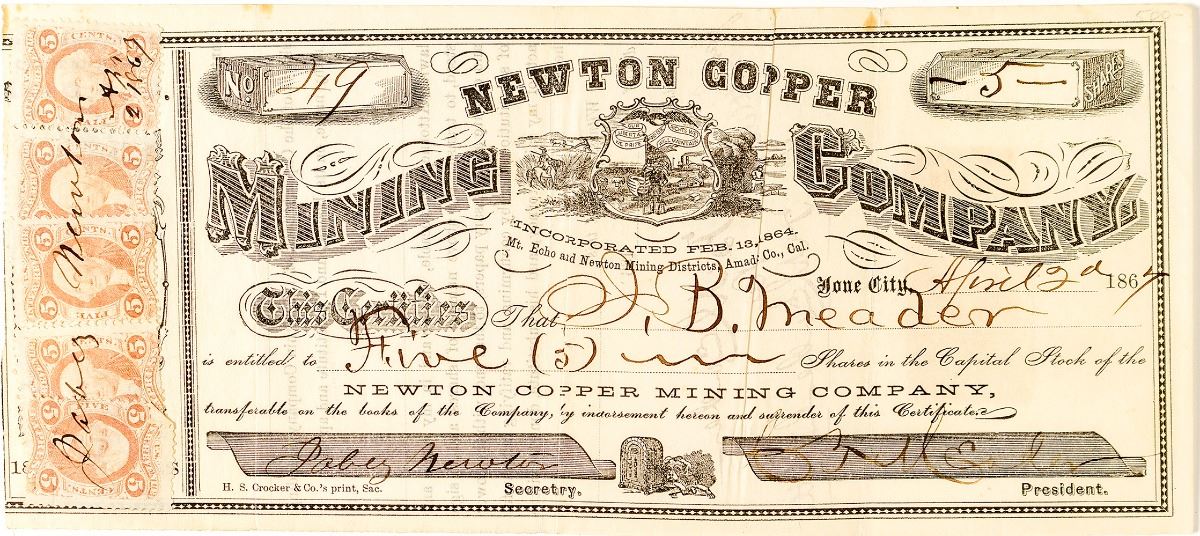 No. 49
NEWTON COPPER
- 5 -
SHARES
MINING COMPANY,
INCORPORATED FEB. 13, 1864.
Mt. Echo and Newton Mining Districts, Amad. Co., Cal.
Ione City, April 2d 1867
This Certifies That B. Meader
is entitled to Five (5) Shares in the Capital Stock of the
NEWTON COPPER MINING COMPANY,
transferable on the books of the Company, by indorsement hereon and surrender of this Certificate.
Jabez Newton
H. S. Crocker & Co.'s print, Sac.
Secretry.
President.
Jabez Newton
5 CENTS. 5
FIVE